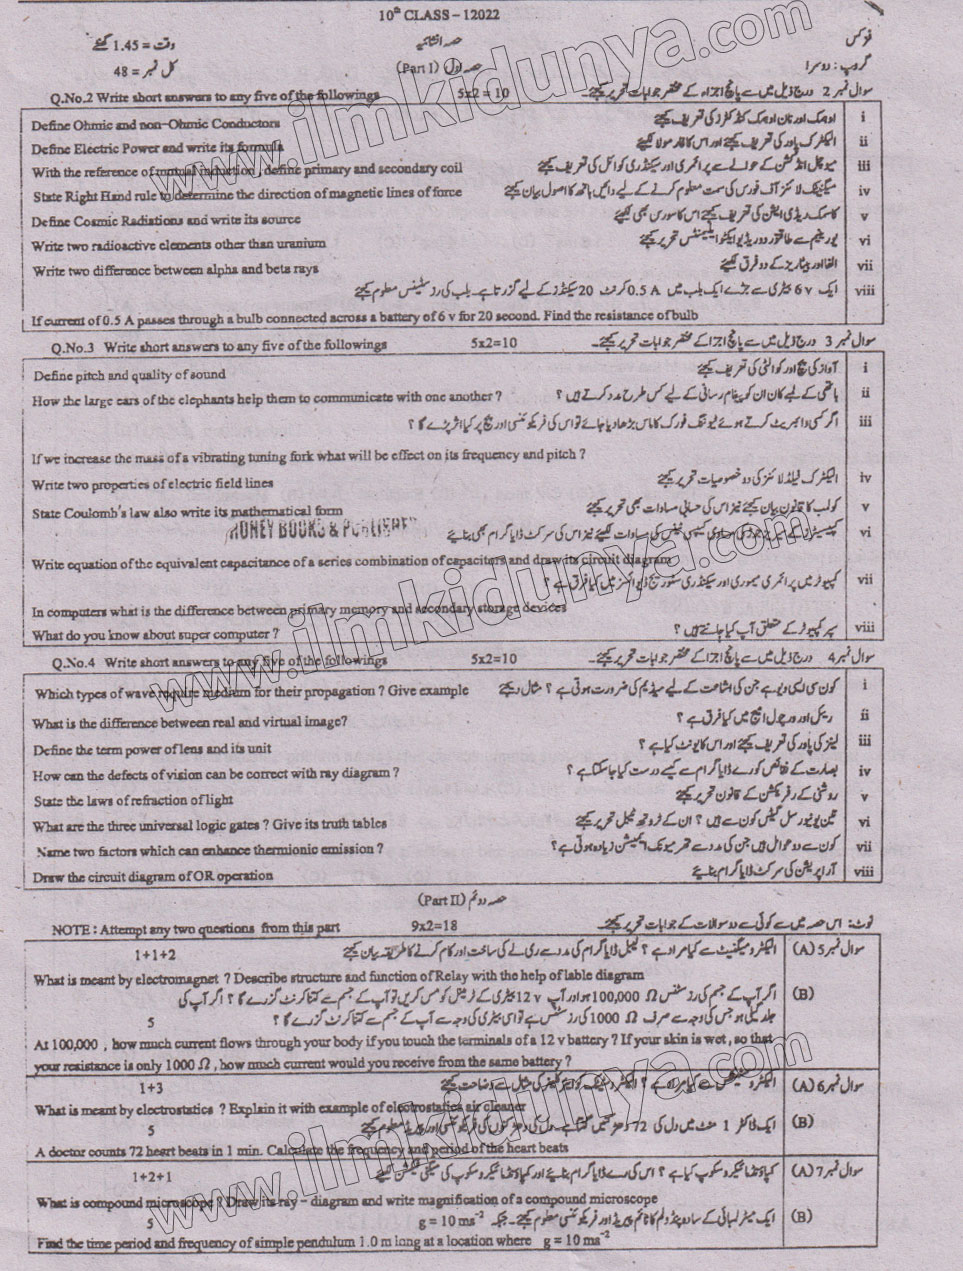 10th CLASS – 12022
وقت = 1.45 گھنٹے حصہ انشائیہ فزکس
کل نمبر = 48 (Part I) حصہ اول گروپ : دوسرا
Q.No.2 Write short answers to any five of the followings 5x2 = 10 سوال نمبر 2 درج ذیل میں سے پانچ اجزاء کے مختصر جوابات تحریر کیجئے۔
Define Ohmic and non-Ohmic Conductors اوہمک اور نان اوہمک کنڈکٹرز کی تعریف کیجئے i
Define Electric Power and write its formula الیکٹرک پاور کی تعریف کیجئے اور اس کا فارمولا لکھیے ii
With the reference of mutual induction , define primary and secondary coil میوچل انڈکشن کے حوالے سے پرائمری اور سیکنڈری کوائل کی تعریف کیجئے iii
State Right Hand rule to determine the direction of magnetic lines of force میگنیٹک لائنز آف فورس کی سمت معلوم کرنے کے لیے دائیں ہاتھ کا اصول بیان کیجئے iv
Define Cosmic Radiations and write its source کاسمک ریڈی ایشن کی تعریف کیجئے اس کا سورس بھی لکھیے v
Write two radioactive elements other than uranium یورینیم سے طاقتور دو ریڈیو ایکٹو ایلیمنٹس تحریر کیجئے vi
Write two difference between alpha and beta rays الفا اور بیٹا ریز کے دو فرق لکھیے vii
ایک 6 v بیٹری سے جڑے ایک بلب میں 0.5 A کرنٹ 20 سیکنڈز کے لیے گزرتا ہے۔ بلب کی رزسٹینس معلوم کیجئے viii
If current of 0.5 A passes through a bulb connected across a battery of 6 v for 20 second. Find the resistance of bulb
Q.No.3 Write short answers to any five of the followings 5x2=10 سوال نمبر 3 درج ذیل میں سے پانچ اجزا کے مختصر جوابات تحریر کیجئے۔
Define pitch and quality of sound آواز کی پچ اور کوالٹی کی تعریف کیجئے i
How the large ears of the elephants help them to communicate with one another ? ہاتھی کے لیے کان ان کو پیغام رسانی کے لیے کس طرح مدد کرتے ہیں ؟ ii
اگر کسی وائبریٹ کرتے ہوئے ٹیوننگ فورک کا ماس بڑھا دیا جائے تو اس کی فریکوئنسی اور پچ پر کیا اثر پڑے گا ؟ iii
If we increase the mass of a vibrating tuning fork what will be effect on its frequency and pitch ?
Write two properties of electric field lines الیکٹرک فیلڈ لائنز کی دو خصوصیات تحریر کیجئے iv
State Coulomb's law also write its mathematical form کولمب کا قانون بیان کیجئے نیز اس کی حسابی مساوات بھی تحریر کیجئے v
HONEY BOOKS &
نیز اس کی سرکٹ ڈایا گرام بھی بنائیے vi
Write equation of the equivalent capacitance of a series combination of capacitors and draw its circuit diagram
کمپیوٹر میں پرائمری میموری اور سیکنڈری سٹوریج ڈیوائسز میں کیا فرق ہے ؟ vii
In computers what is the difference between primary memory and secondary storage devices
What do you know about super computer ? سپر کمپیوٹر کے متعلق آپ کیا جانتے ہیں ؟ viii
Q.No.4 Write short answers to any five of the followings 5x2=10 سوال نمبر 4 درج ذیل میں سے پانچ اجزا کے مختصر جوابات تحریر کیجئے۔
Which types of wave require medium for their propagation ? Give example کون سی ایسی ویوز ہے جن کی اشاعت کے لیے میڈیم کی ضرورت ہوتی ہے ؟ مثال دیجئے i
What is the difference between real and virtual image? ریئل اور ورچوئل امیج میں کیا فرق ہے ؟ ii
Define the term power of lens and its unit لینز کی پاور کی تعریف کیجئے اور اس کا یونٹ کیا ہے ؟ iii
How can the defects of vision can be correct with ray diagram ? بصارت کے نقائص کو رے ڈایا گرام سے کیسے درست کیا جا سکتا ہے ؟ iv
State the laws of refraction of light روشنی کے رفریکشن کے قانون تحریر کیجئے v
What are the three universal logic gates ? Give its truth tables تین یونیورسل گیٹس کون سے ہیں ؟ ان کے ٹروتھ ٹیبل تحریر کیجئے vi
Name two factors which can enhance thermionic emission ? کون سے دو عوامل ہیں جن کی مدد سے تھرمیونک ایمیشن زیادہ ہوتی ہے ؟ vii
Draw the circuit diagram of OR operation آر آپریشن کی سرکٹ ڈایا گرام بنائیے viii
(Part II) حصہ دوئم
NOTE : Attempt any two questions from this part 9x2=18 نوٹ : اس حصہ میں سے کوئی سے دو سوالات کے جوابات تحریر کیجئے۔
1+1+2 الیکٹرومیگنیٹ سے کیا مراد ہے ؟ لیبل ڈایا گرام کی مدد سے ریلے کی ساخت اور کام کرنے کا طریقہ بیان کیجئے (A) سوال نمبر 5
What is meant by electromagnet ? Describe structure and function of Relay with the help of lable diagram
اگر آپ کے جسم کی رزسٹنس 100,000 Ω ہو اور آپ 12 v بیٹری کے ٹرمینل کو مس کریں تو آپ کے جسم سے کتنا کرنٹ گزرے گا ؟ اگر آپ کی (B)
5 جلد گیلی ہو جس کی وجہ سے صرف 1000 Ω کی رزسٹنس ہے تو اسی بیٹری کی وجہ سے آپ کے جسم سے کتنا کرنٹ گزرے گا ؟
At 100,000 , how much current flows through your body if you touch the terminals of a 12 v battery ? If your skin is wet, so that
your resistance is only 1000 Ω , how much current would you receive from the same battery ?
1+3 الیکٹروسٹیٹکس سے کیا مراد ہے ؟ کی مثال سے وضاحت کیجئے (A) سوال نمبر 6
What is meant by electrostatics ? Explain it with example of electrostatics air cleaner
5 ایک ڈاکٹر 1 منٹ میں دل کی 72 دھڑکنیں گنتا ہے۔ دل کی دھڑکنوں کی فریکوئنسی اور پیریڈ معلوم کیجئے (B)
A doctor counts 72 heart beats in 1 min. Calculate the frequency and period of the heart beats
1+2+1 کمپاؤنڈ مائیکروسکوپ کیا ہے ؟ اس کی رے ڈایا گرام بنائیے اور کمپاؤنڈ مائیکروسکوپ کی میگنی فیکیشن لکھیے (A) سوال نمبر 7
What is compound microscope ? Draw its ray – diagram and write magnification of a compound microscope
5 ایک میٹر لمبائی کے سادہ پنڈولم کا ٹائم پیریڈ اور فریکوئنسی معلوم کیجئے۔ جبکہ g = 10 ms⁻² (B)
Find the time period and frequency of simple pendulum 1.0 m long at a location where g = 10 ms⁻²
www.ilmkidunya.com
www.ilmkidunya.com
www.ilmkidunya.com